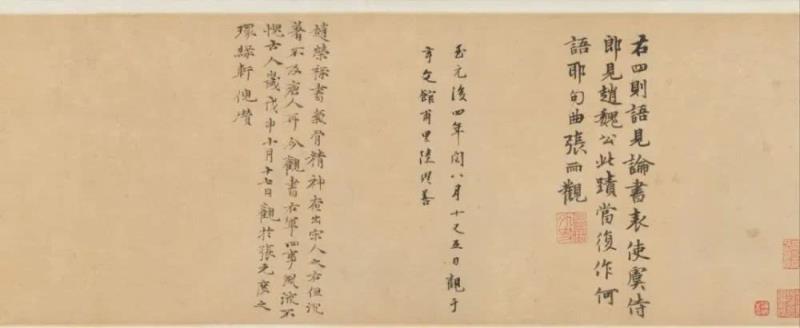 右四則語見論書表使虞侍
郎見趙魏公此蹟當復作何
語耶句曲張雨觀
至元後四年閏八月十又五日觀于
玄文館甫里陸繼善
趙榮祿書氣骨精神奄出宋人之右但沉
著不及唐人耳今觀書右軍四事風流不
愧古人歲戊申月十七日觀於張元度之
環綠軒倪瓚